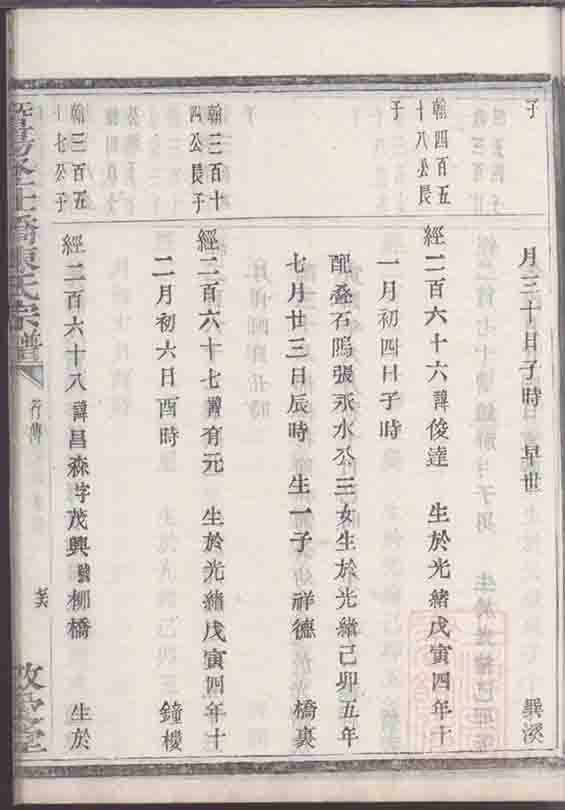 子
月三十日子時 早世 巽溪
翰四百五
十八公長
子
經二百六十六諱俊達 生於光緒戊寅四年十
一月初四日子時
配叠石塢張永水公三女生於光緒己卯五年
七月廿三日辰時 生一子 祥德 橋裏
翰三百十
四公長子
經二百六十七諱有元 生於光緒戊寅四年十
二月初六日酉時 鐘樓
翰三百五
十七公子
經二百六十八諱昌森字茂興號柳橋 生於
橋陳氏宗譜
行傳
敬愛堂